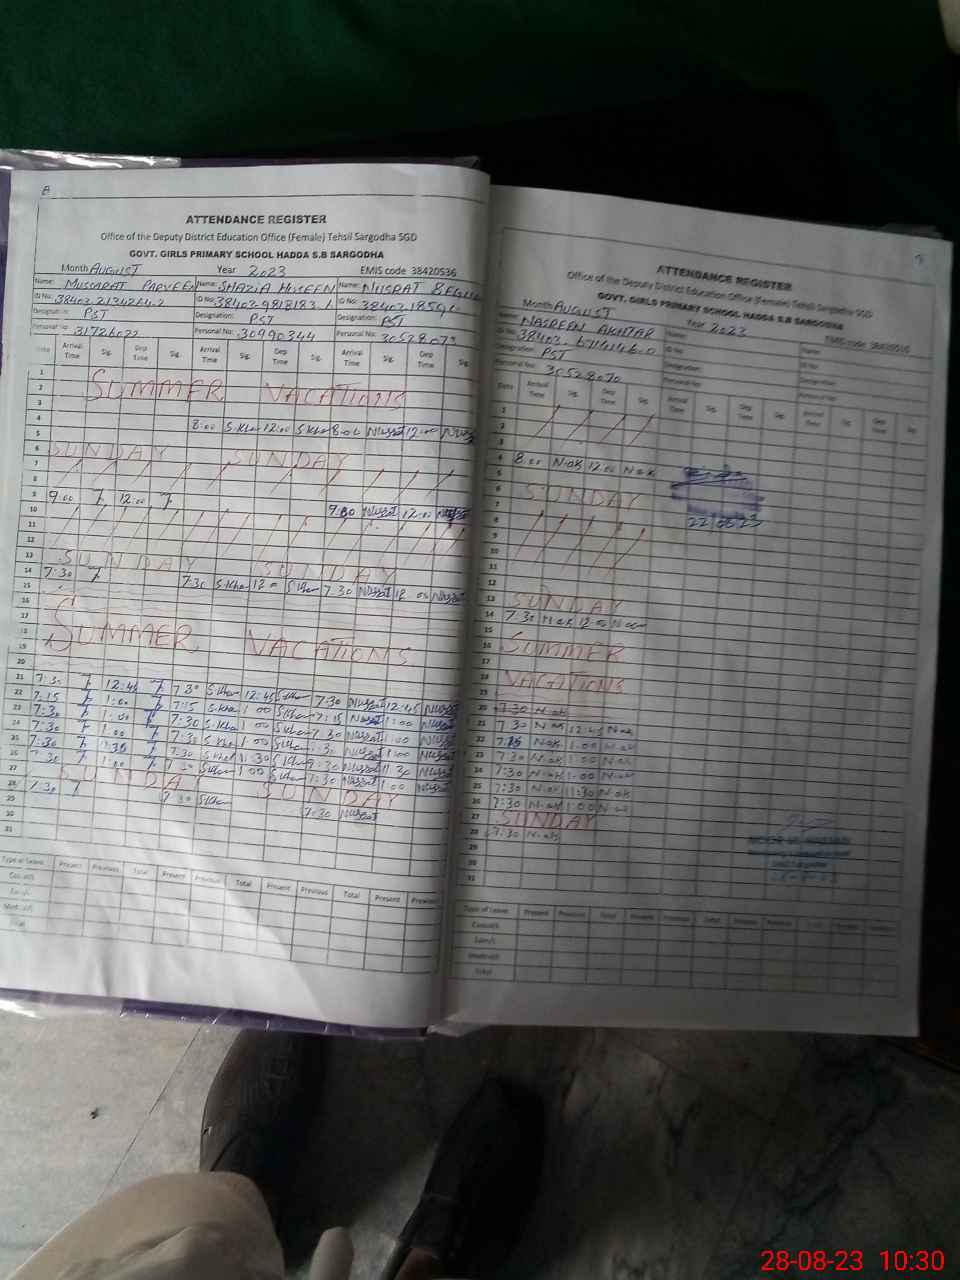 8
ATTENDANCE REGISTER
Office of the Deputy District Education Office (Female) Tehsil Sargodha SGD
GOVT. GIRLS PRIMARY SCHOOL HADDA S.B SARGODHA
Month AUGUST Year 2023 EMIS code 38420536
Name: MUSSARAT PARVEEN Name: SHAZIA HUSEEN Name: NUSRAT BEGUM
ID No: ID No: ID No:
Designation: PST Designation: PST Designation: PST
Personal No: 31726022 Personal No: 30990344 Personal No: 30528073
Date Arrival Time Sig. Dep Time Sig. Arrival Time Sig. Dep Time Sig. Arrival Time Sig. Dep Time Sig.
1
2 SUMMER VACATIONS
3
4
5 8:00 S.Kha 12:00 S.Kha 8:00 Nusrat 12:00
6 SUNDAY SUNDAY
7
8
9 9:00 12:00
10 7:30 Nusrat 12:00 Nusrat
11
12
13 SUNDAY SUNDAY
14 7:30
15 7:30 S.Kha 12:00 S.Kha 7:30 Nusrat 12:00 Nusrat
16
17
18 SUMMER VACATIONS
19
20
21 7:30 12:45 7:30 S.Kha 12:45 S.Kha 7:30 Nusrat 12:45 Nusrat
22 7:15 1:00 7:15 S.Kha 1:00 S.Kha 7:15 Nusrat 1:00 Nusrat
23 7:30 1:00 7:30 S.Kha 1:00 S.Kha 7:30 Nusrat 1:00 Nusrat
24 7:30 1:00 7:30 S.Kha 1:00 S.Kha 7:30 Nusrat 1:00 Nusrat
25 7:30 7:30 S.Kha 11:30 S.Kha 7:30 Nusrat 11:30 Nusrat
26 7:30 1:00 7:30 S.Kha 1:00 S.Kha 7:30 Nusrat 1:00 Nusrat
27 SUNDAY SUNDAY
28 7:30 7:30 S.Kha 7:30 Nusrat
29
30
31
Type of Leave Present Previous Total Present Previous Total Present Previous Total Present Previous
Casual/s
Earn/s
Medical/s
Total
9
ATTENDANCE REGISTER
Office of the Deputy District Education Office (Female) Tehsil Sargodha SGD
GOVT. GIRLS PRIMARY SCHOOL HADDA S.B SARGODHA
Month AUGUST Year 2023 EMIS code 38420536
Name: NASREEN AKHTAR Name: Name:
ID No: ID No: ID No:
Designation: PST Designation: Designation:
Personal No: 30528070 Personal No: Personal No:
Date Arrival Time Sig. Dep Time Sig. Arrival Time Sig. Dep Time Sig. Arrival Time Sig. Dep Time Sig.
1
2
3
4
5 8:00 N.ak 12:00 N.ak
6 SUNDAY
7
8 22 08 23
9
10
11
12
13 SUNDAY
14 7:30 N.ak 12:00 N.ak
15
16 SUMMER
17
18 VACATIONS
19
20 7:30 N.ak
21 7:30 N.ak 12:45 N.ak
22 7:15 N.ak 1:00 N.ak
23 7:30 N.ak 1:00 N.ak
24 7:30 N.ak 1:00 N.ak
25 7:30 N.ak 11:30 N.ak
26 7:30 N.ak 1:00 N.ak
27 SUNDAY
28 7:30 N.ak
29
30
31
Type of Leave Present Previous Total Present Previous Total Present Previous Total
Casual/s
Earn/s
Medical/s
Total
28-08-23 10:30